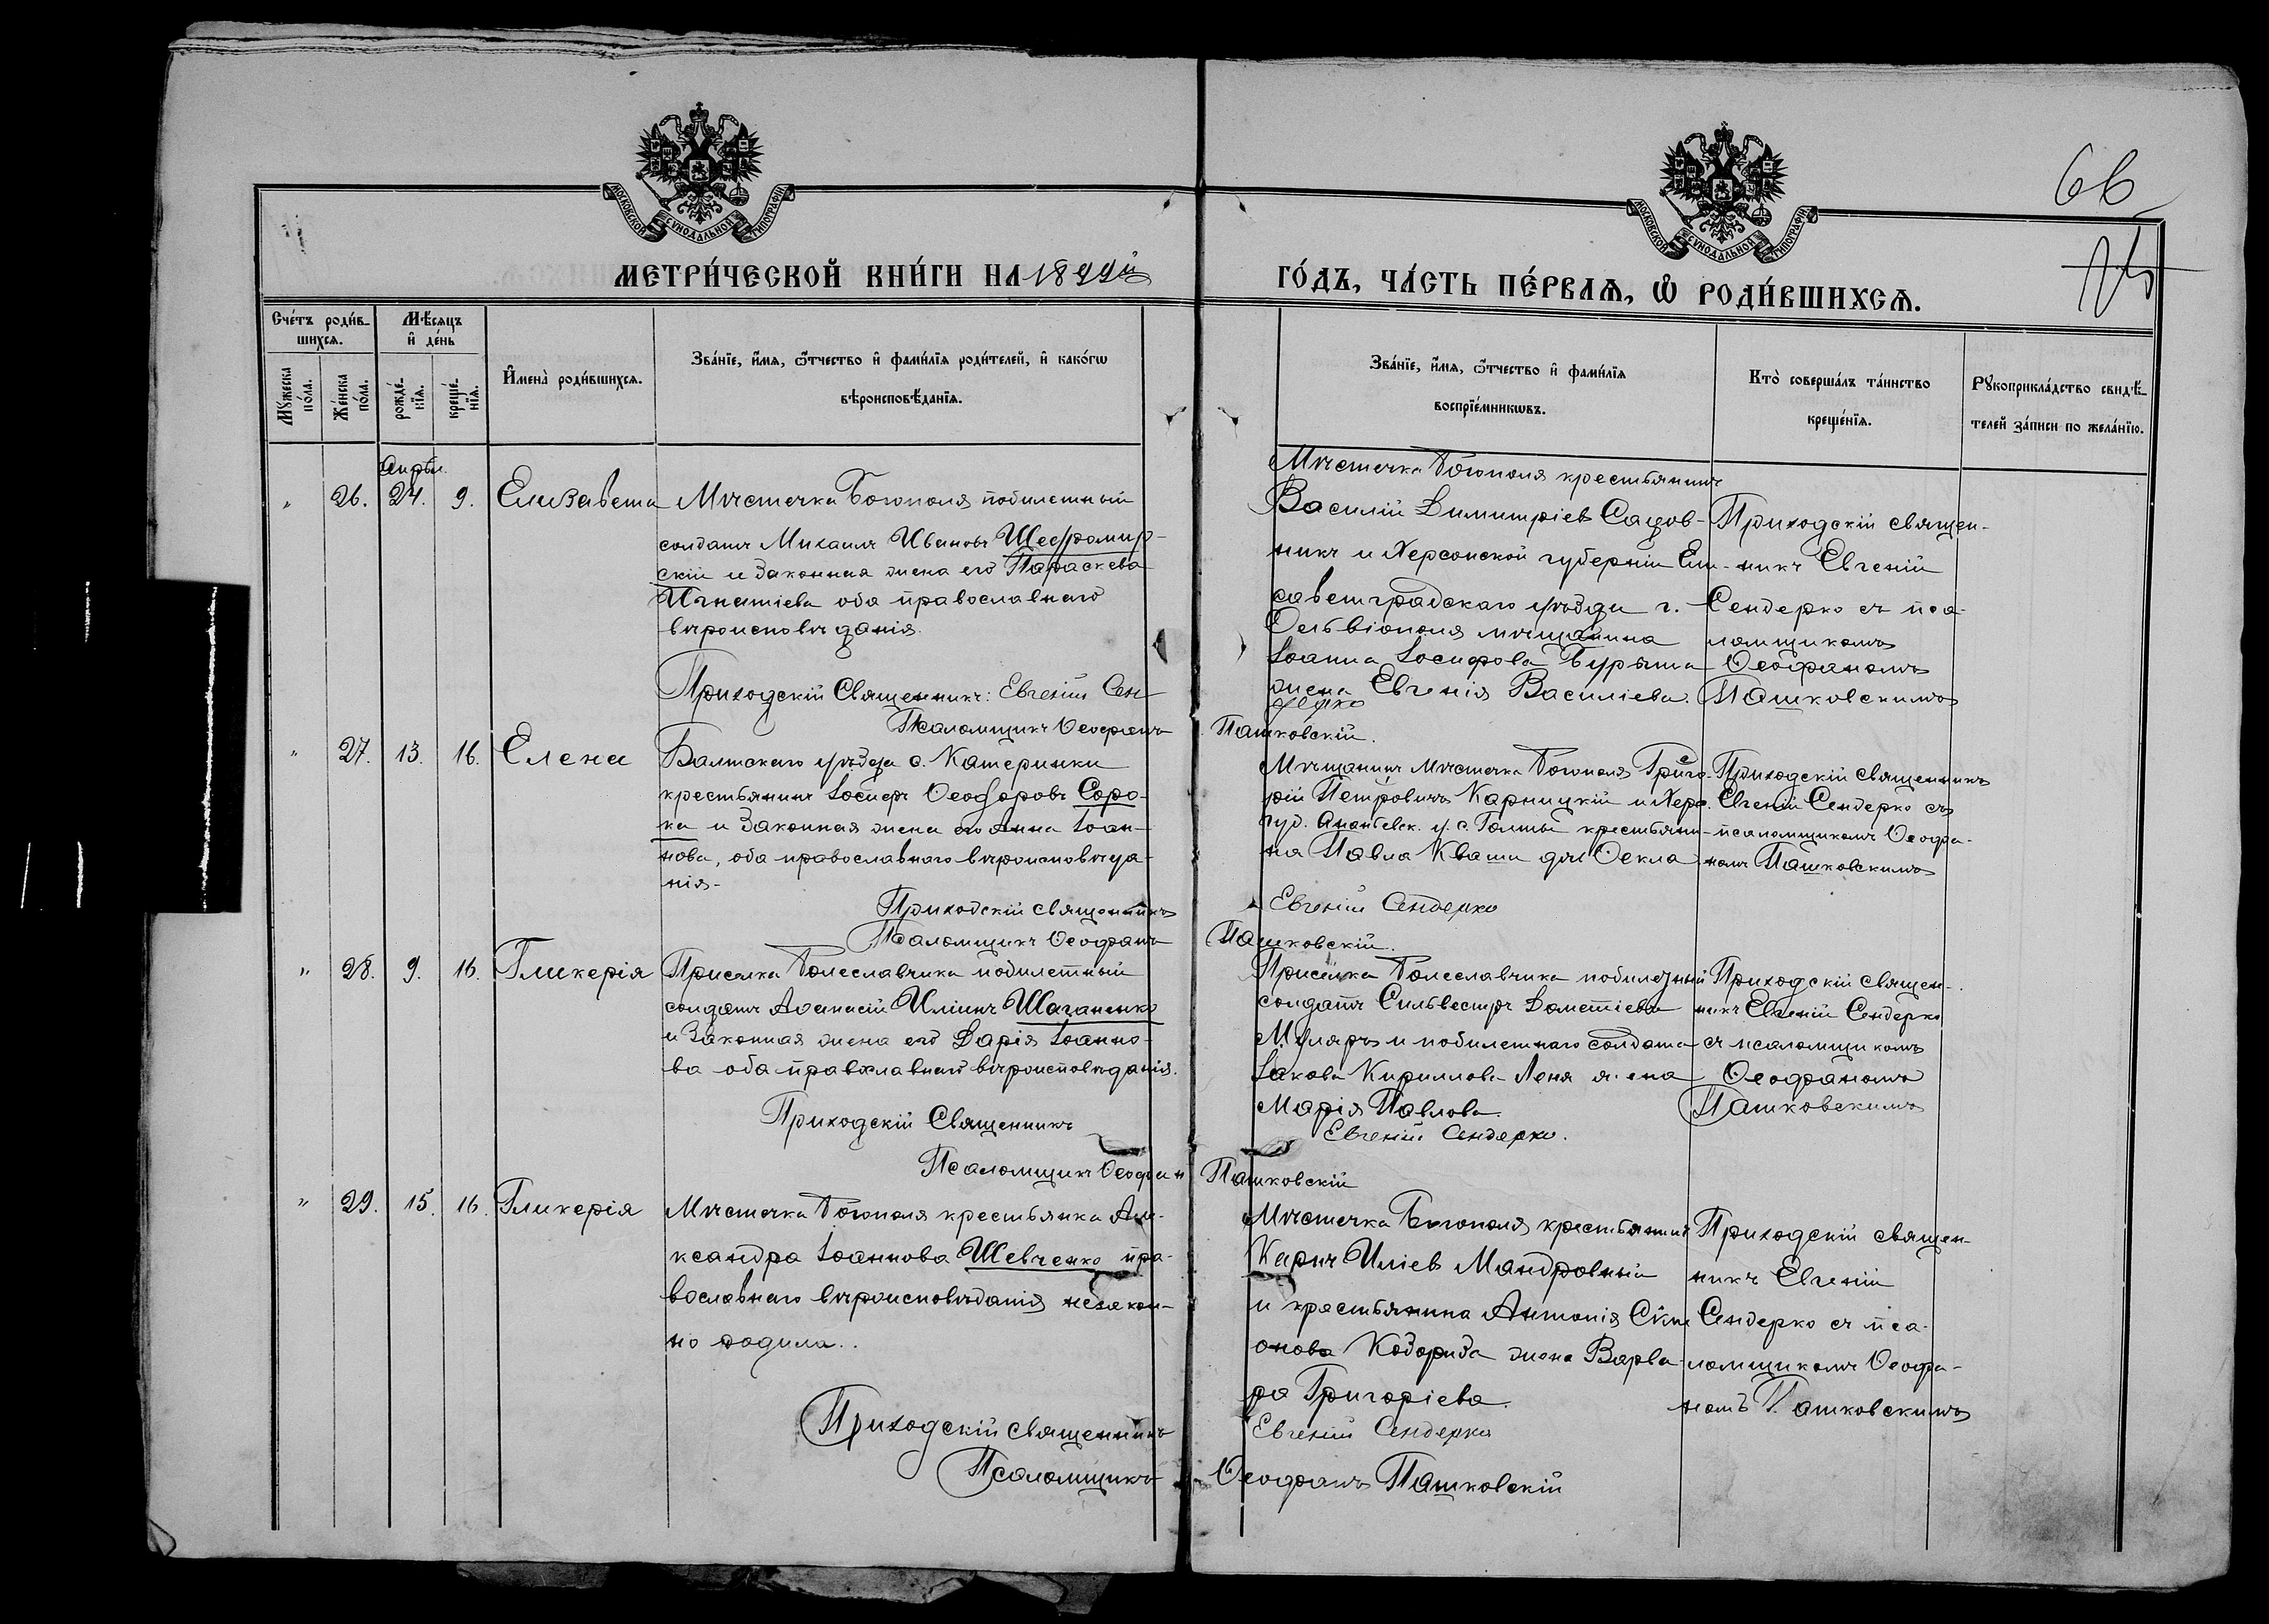 66
МОСКОВСКОЙ СѴНОДАЛЬНОЙ ТИПОГРАФІИ
МОСКОВСКОЙ СѴНОДАЛЬНОЙ ТИПОГРАФІИ
МЕТРИ́ЧЕСКОЙ КНИ́ГИ НА 1899й
ГО́ДЪ, ЧА́СТЬ ПЕ́РВАѦ, Ѡ РОДИ́ВШИХСѦ.
Сче́тъ роди́в-
шихсѧ.
Мꙋжеска по́ла.
Же́нска по́ла.
Мѣ́сѧцъ и҆ де́нь
рожде́-нїѧ.
креще́-нїѧ.
И҆мена̀ роди́вшихсѧ.
Зва́нїе, и҆́мѧ, ѻ҆́тчество и҆ фами́лїѧ роди́телей, и҆ како́гѡ
вѣроисповѣ́данїѧ.
Зва́нїе, и҆́мѧ, ѻ҆́тчество и҆ фами́лїѧ
воспрїе́мникѡвъ.
Кто̀ соверша́лъ та́инство
креще́нїѧ.
Рꙋкоприкла́дство свидѣ́-
телей за́писи по жела́нїю.
Апрѣл.
" 26. 24. 9. Елизавета
Мѣстечка Богополя побилетный
солдатъ Михаилъ Ивановъ
скій и законная жена его Параскева
Игнатіева оба православнаго
вѣроисповѣданія.
Приходскій Священникъ: Евгеній Сен
дерко
Псаломщикъ Ѳеофанъ Пашковскій.
Мѣстечка Богополя крестьянинъ
Василій Димитріев Садов-
никъ и Херсонской губерніи Ели-
саветградскаго уѣзда г.
Ольвіополя мѣщанина
Іоанна Іосифова
жена Евгенія Василіева.
Приходскій священ-
никъ Евгеній
Сендерко съ пса-
ломщикомъ
Ѳеофаномъ
Пашковскимъ
" 27. 13. 16. Елена
Балтскаго уѣзда с. Катеринки
крестьянинъ Іосифъ Ѳеодоровъ Соро-
ка и законная жена его Анна Іоан-
нова, оба православнаго вѣроисповѣда-
нія.
Приходскій священникъ Евгеній Сендерко
Псаломщикъ Ѳеофанъ Пашковскій.
Мѣщанинъ мѣстечка Богополя Григо-
рій Петровичъ Карницкій и Херс.
губ. Ананьевск. у. с. Голты крестьяни-
на Павла Кваши дочь Ѳекла
Приходскій священникъ
Евгеній Сендерко съ
псаломщикомъ Ѳеофа-
номъ Пашковскимъ
" 28. 9. 16. Гликерія
Приселка Болеславчика побилетный
солдатъ Аѳанасій Иліинъ Шаганенко
и законная жена его Дарія Іоанно-
ва оба православнаго вѣроисповѣданія.
Приходскій Священникъ Евгеній Сендерко.
Псаломщикъ Ѳеофан Пашковскій
Приселка Болеславчика побилетный
солдатъ Сильвестръ Дометіевъ
Муляръ и побилетнаго солдата
Іакова Кириллова Леня жена
Марія Павлова.
Приходскій священ-
никъ Евгеній Сендерко
съ псаломщикомъ
Ѳеофаномъ
Пашковскимъ
" 29. 15. 16. Гликерія
Мѣстечка Богополя крестьянка Але-
ксандра Іоаннова Шевченко пра-
вославнаго вѣроисповѣданія незакон-
но родила.
Приходскій священникъ Евгеній Сендерко
Псаломщикъ Ѳеофанъ Пашковскій
Мѣстечка Богополя крестьянинъ
Карпъ Иліев Мандровный
и крестьянина Антонія
жена Варва-
ра Григоріева.
Приходскій священ-
никъ Евгеній
Сендерко съ пса-
ломщикомъ Ѳеофа-
номъ Пашковскимъ